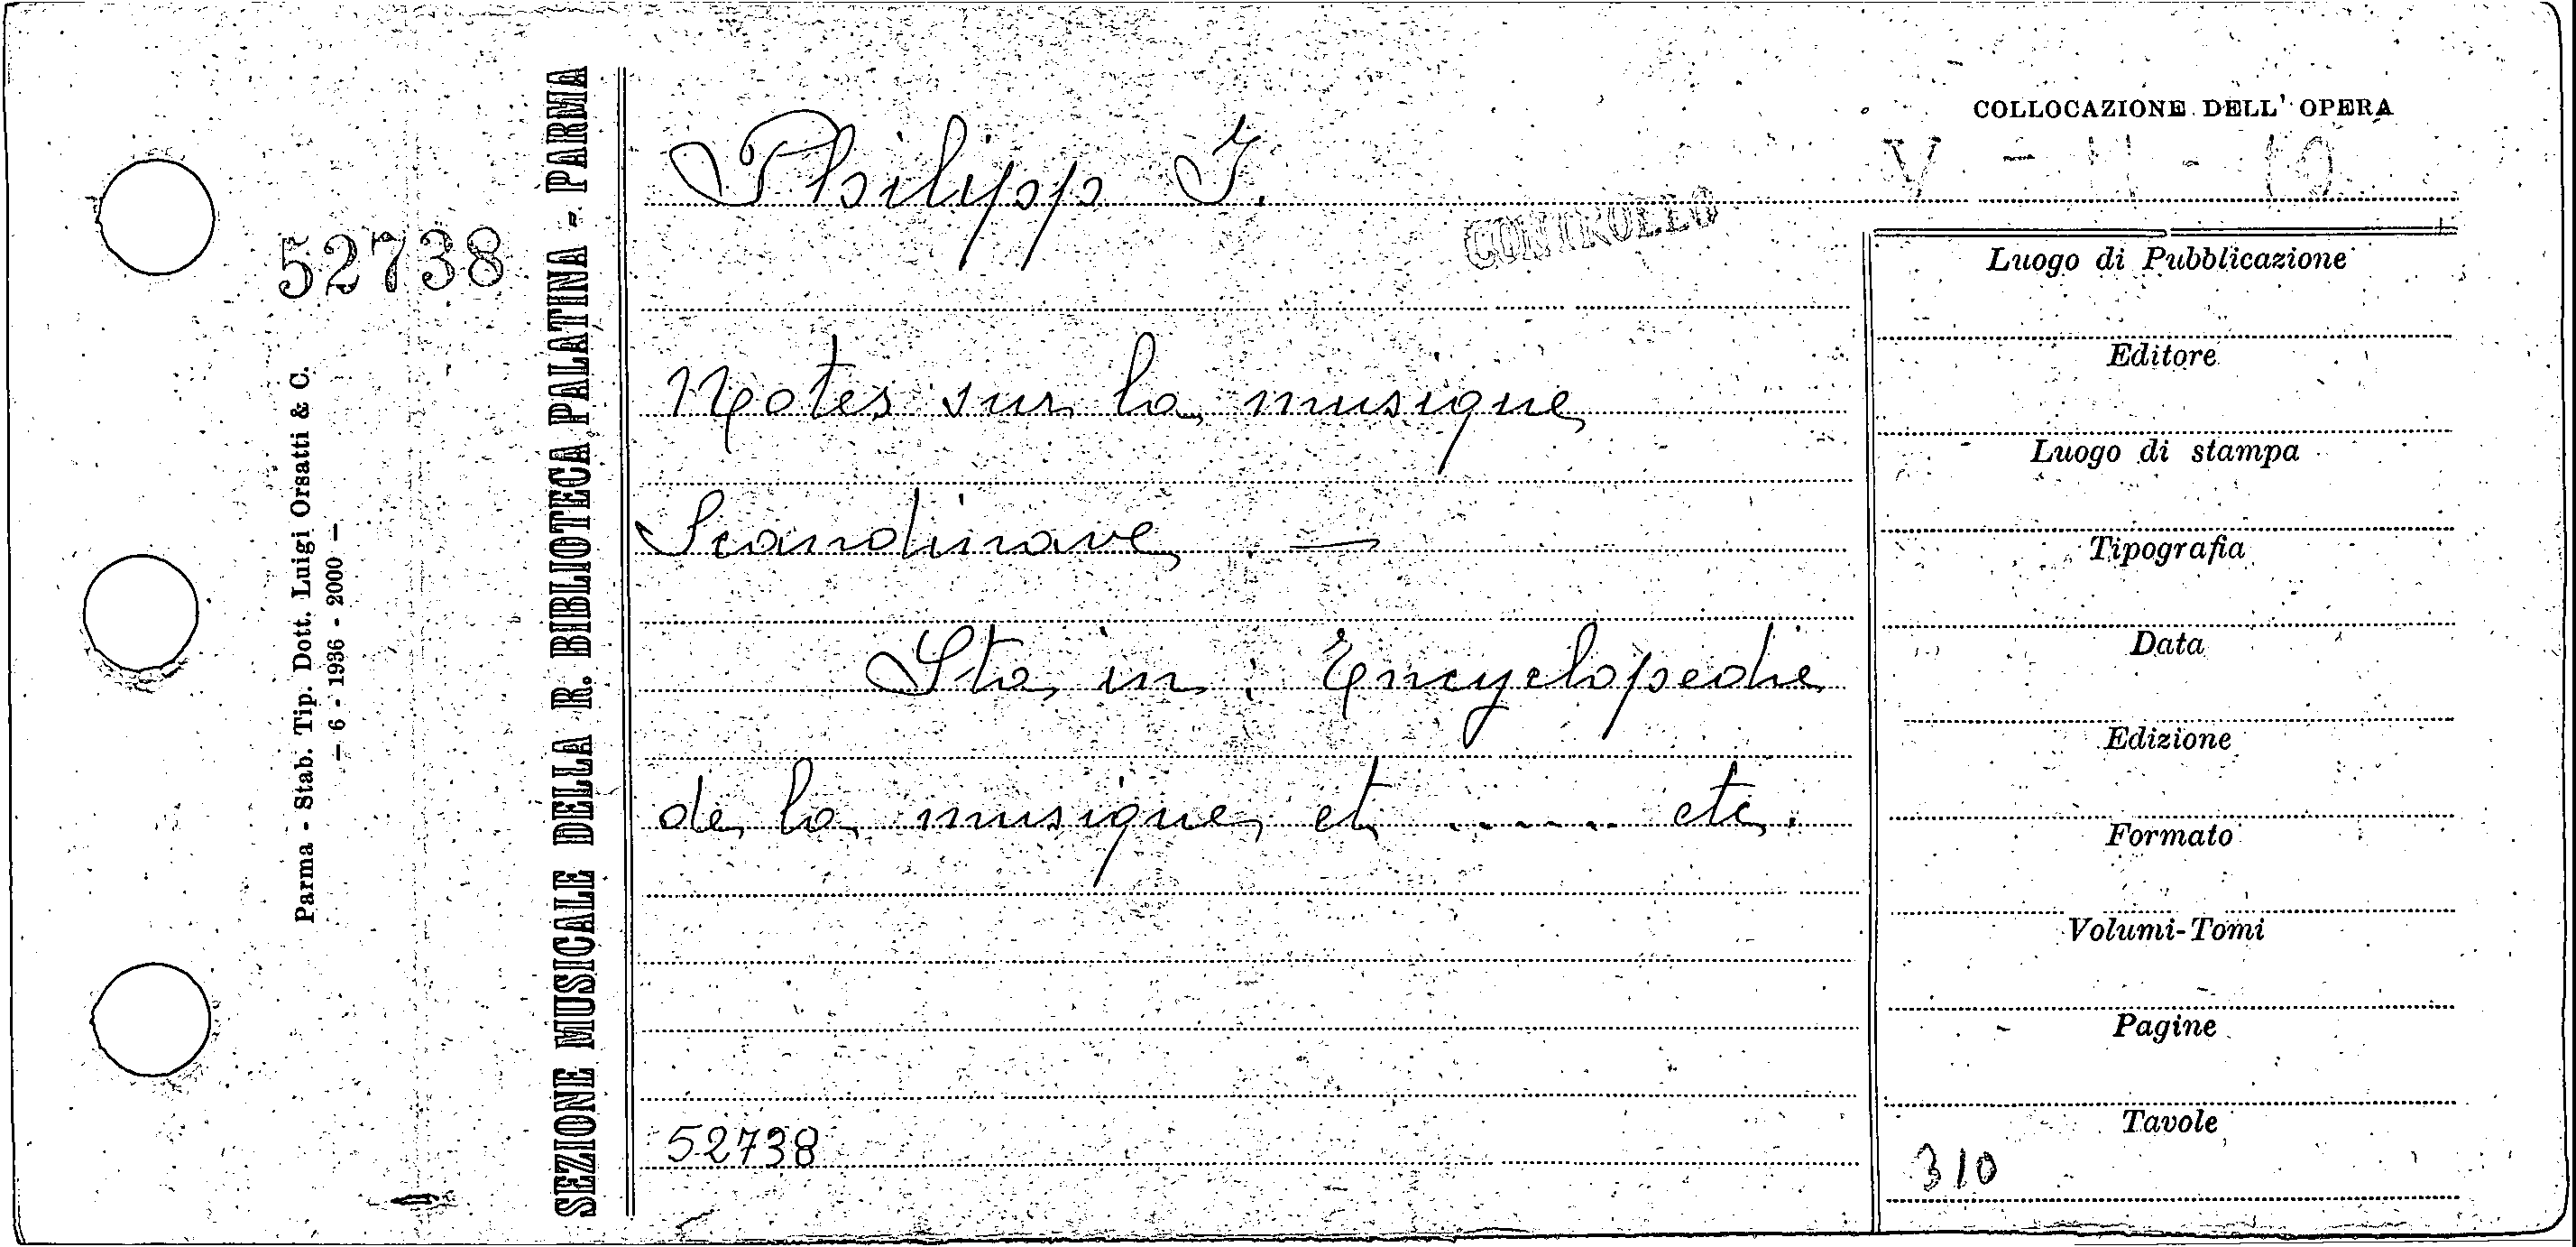 COLLOCAZIONE DELL' OPERA
Philipp I.
V - 11 - 10
CONTROLLO
52738
Notes sur la musique
Scandinave —
Sta in: Encyclopedie
de la musique et ...... etc.
52738
Luogo di Pubblicazione
Editore
Luogo di stampa
Tipografia
Data
Edizione
Formato
Volumi-Tomi
Pagine
Tavole
310
SEZIONE MUSICALE DELLA R. BIBLIOTECA PALATINA - PARMA
Parma - Stab. Tip. Dott. Luigi Orsatti & C.
— 6 - 1936 - 2000 —